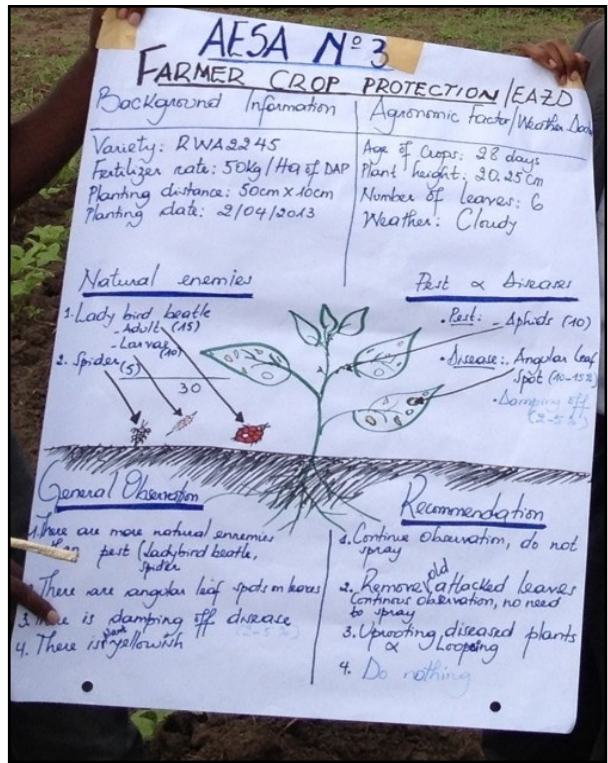 AESA No 3
FARMER CROP PROTECTION/EAZD
Background Information
Variety: RWA2245
Fertilizer rate: 50kg/Ha of DAP
Planting distance: 50cm x 10cm
Planting date: 2/04/2013
Agronomic Factor/Weather
Age of Crops: 28 days
Plant height: 20.25cm
Number of leaves: 6
Weather: Cloudy
Natural enemies
1. Lady bird beatle
- Adult (15)
- Larvae (10)
2. Spider (5)
30
Pest & Diseases
• Pest: - Aphids (10)
• Disease: . Angular leaf
Spot (10-15%)
• Damping off
(2-5%)
General Observation
1. There are more natural ennemies
pest (Ladybird beatle,
spider
There are angular leaf spots on leaves
3. There is damping off disease
(2-5%)
4. There is yellowish
Recommendation
1. Continue Observation, do not
spray
2. Remove old attacked leaves
Continous observation, no need
to spray
3. Uprooting diseased plants
&
4. Do nothing